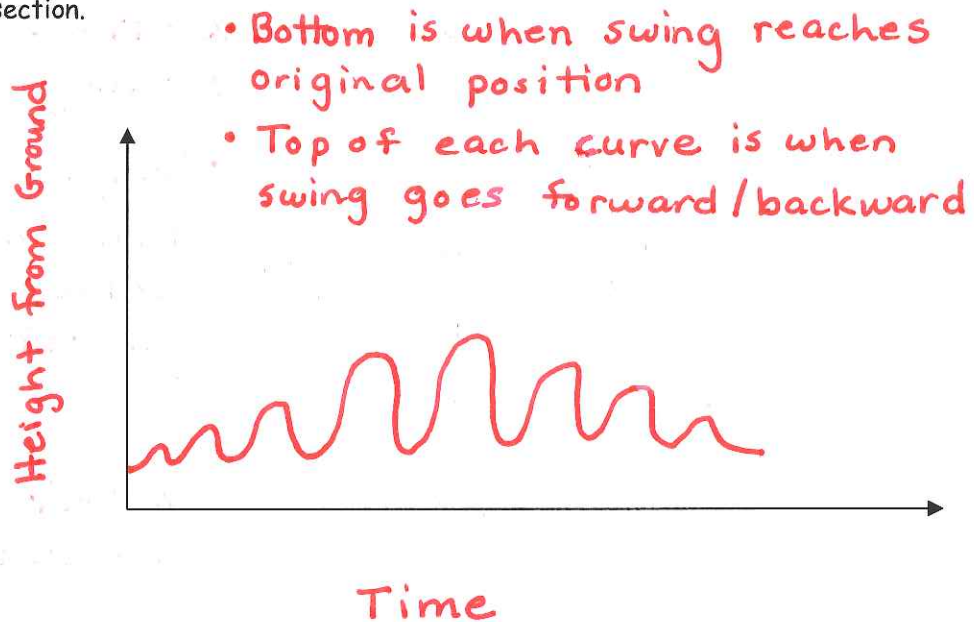 section.
• Bottom is when swing reaches
original position
• Top of each curve is when
swing goes forward/backward
Height from Ground
Time